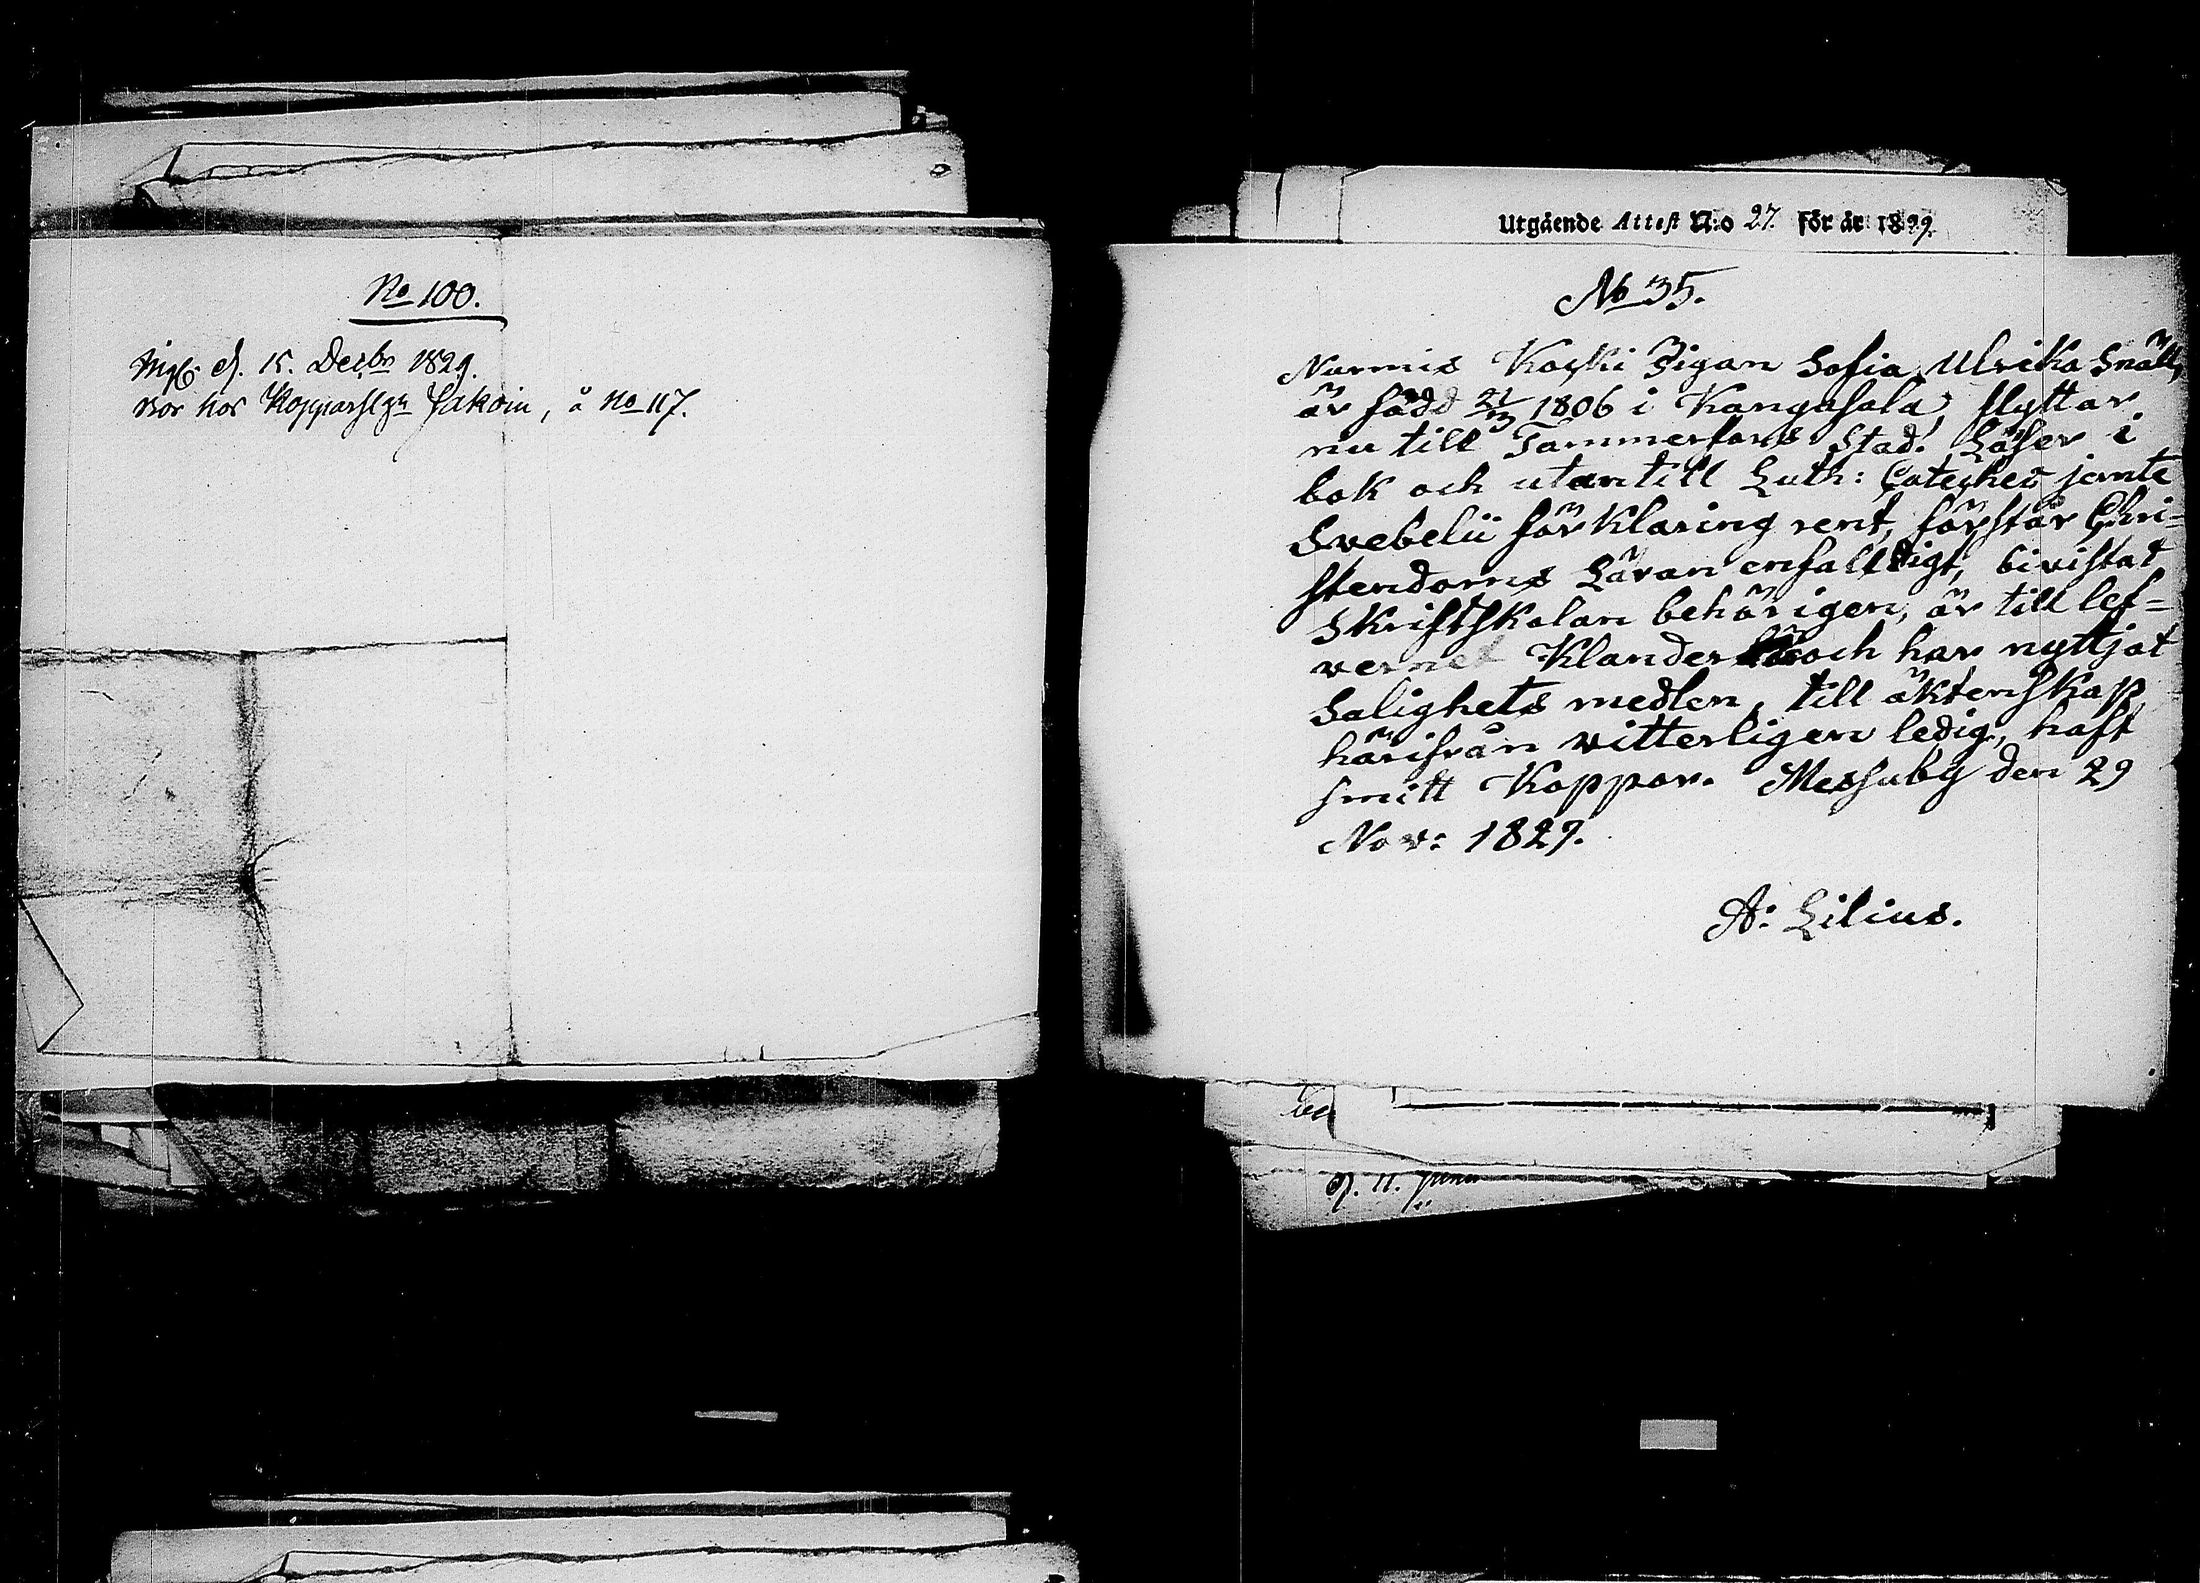 No 100.
d. 15. Decbr 1829.
bor hos Kopparslgn, å No 117.
Utgående Attest N:o 27. För år 1829.
No 35.
Nurmis Koski Pigan Sofia Ulrika Snäll,
är född 21/3 1806 i Kangasala, flyttar
nu till Tammerfors Stad. Läser i
bok och utantill Luth: Cateches jemte
Svebelii förklaring rent, förstår Chri=
stendoms Läran enfalldigt, bivistat
Skriftskolan behörigen, är till lef=
vernet Klander och har nyttjat
Salighets medlen, till äktenskap
härifrån vitterligen ledig, haft
smitt Koppor. Messuby den 29
Nov: 1829.
A: Lilius.
d. 11. Junii